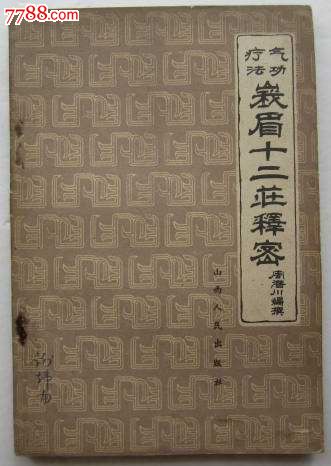 7788.com
气功
疗法
峩眉十二莊釋密
周潛川编撰
山西人民出版社